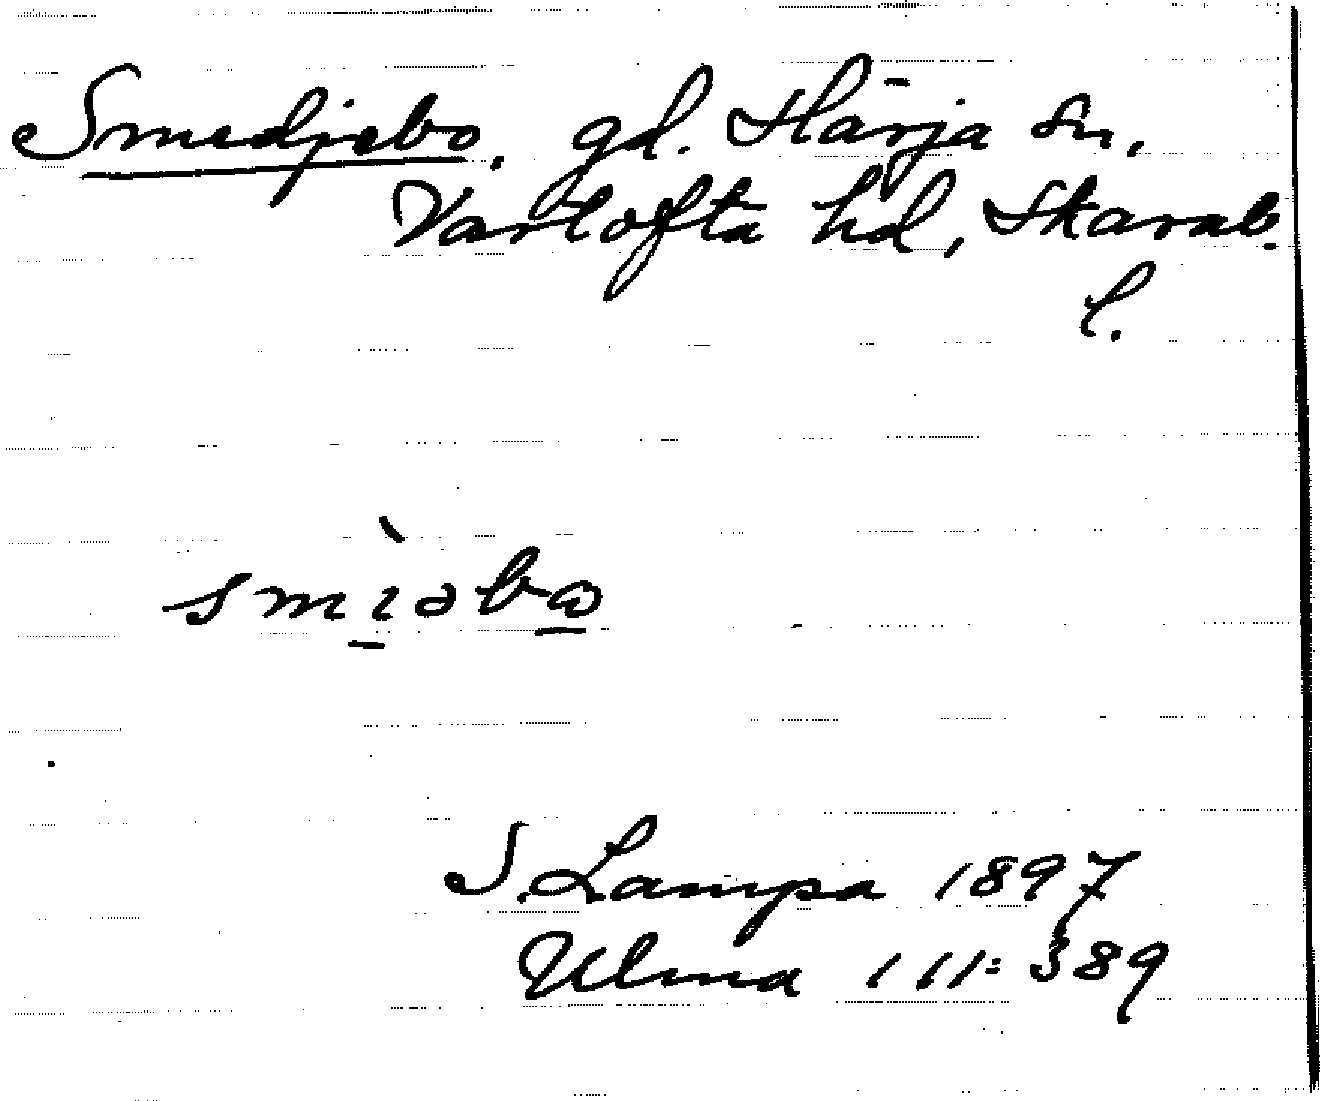 Smedjebo, gd. Härja sn,
Vartofta hd, Skarab.
l.
smìəbɷ
S. Lampa 1897
Ulma 111:389